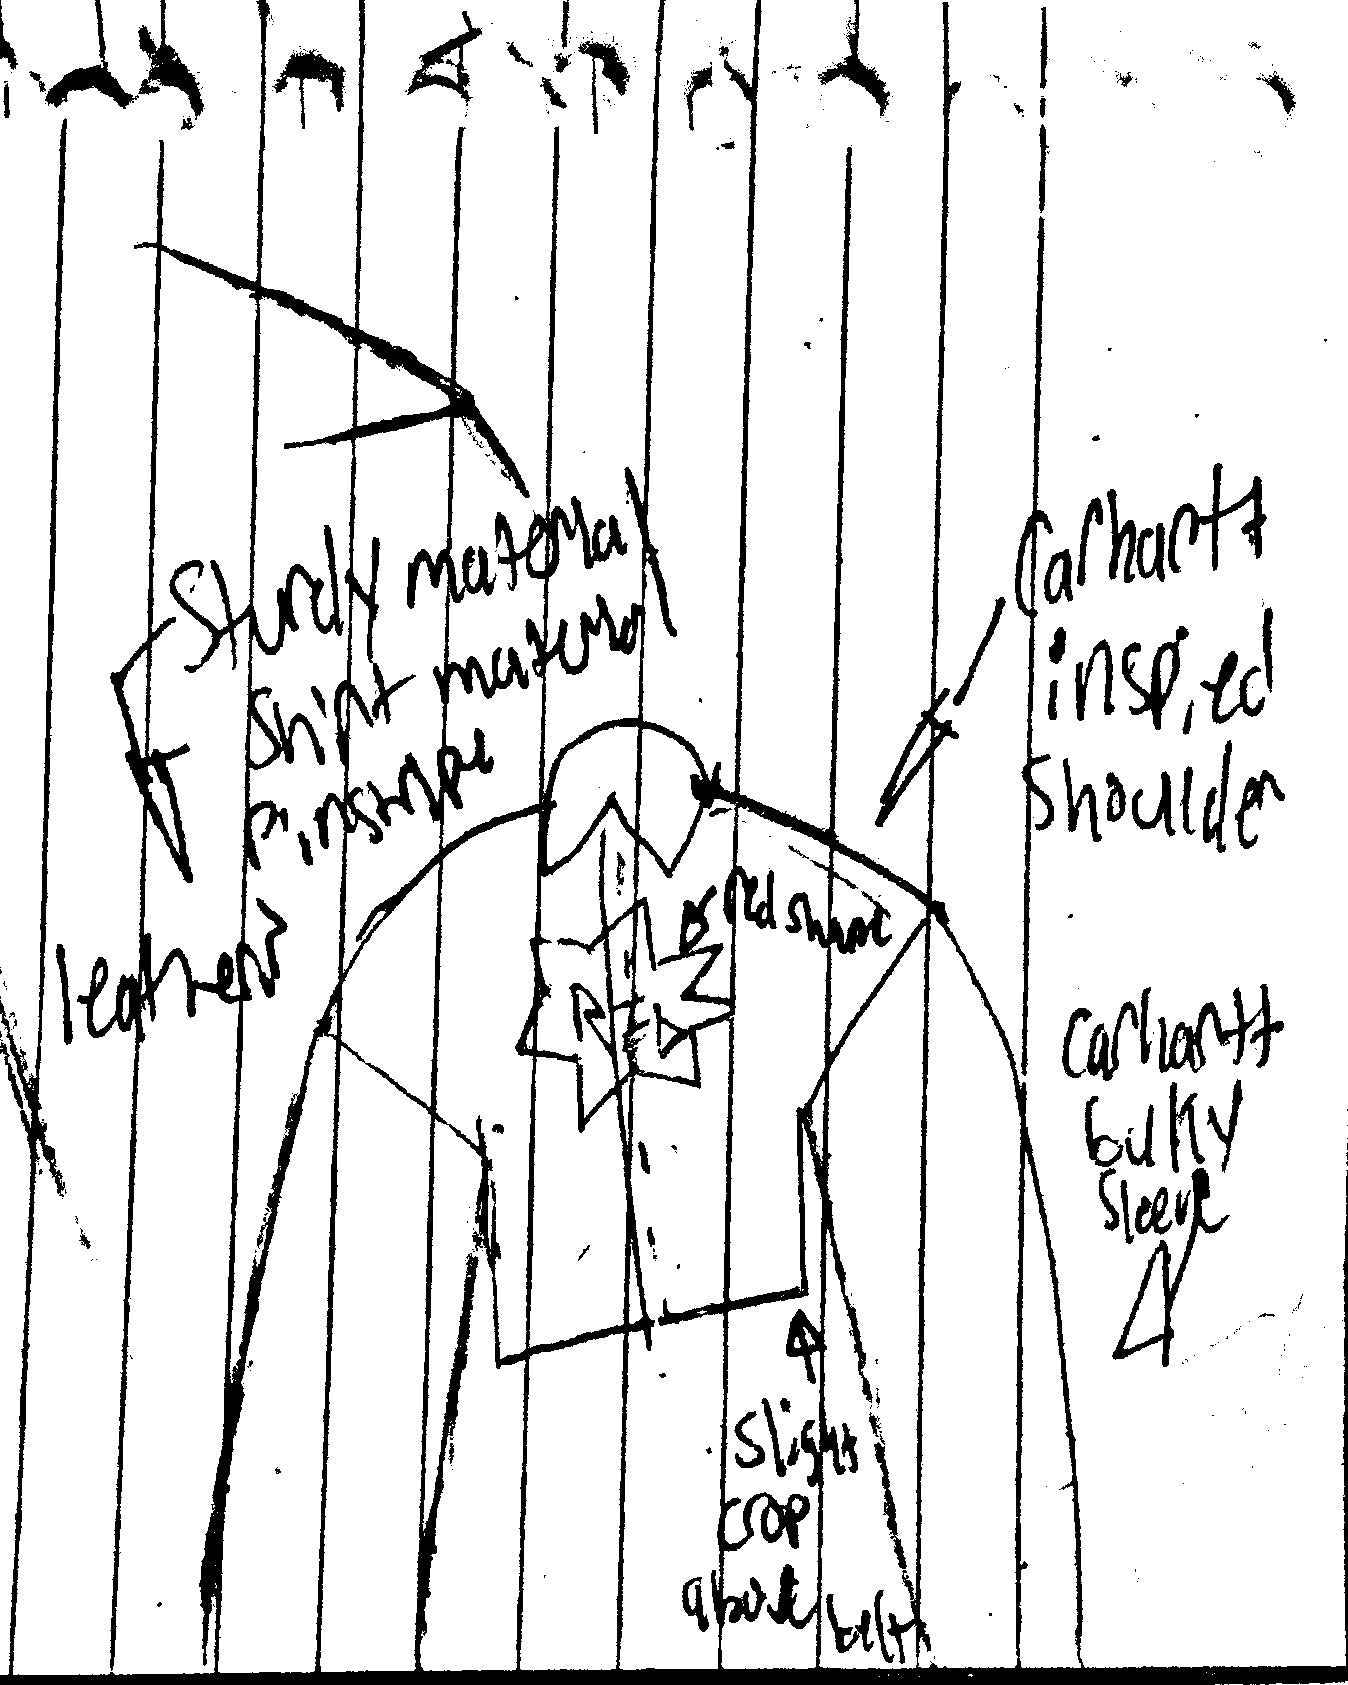 Sturdy material
shirt material
pinstripe
leather?
Carhartt
inspired
shoulder
red shape
RED
Carhartt
bulky
sleeve
slight
crop
above belt